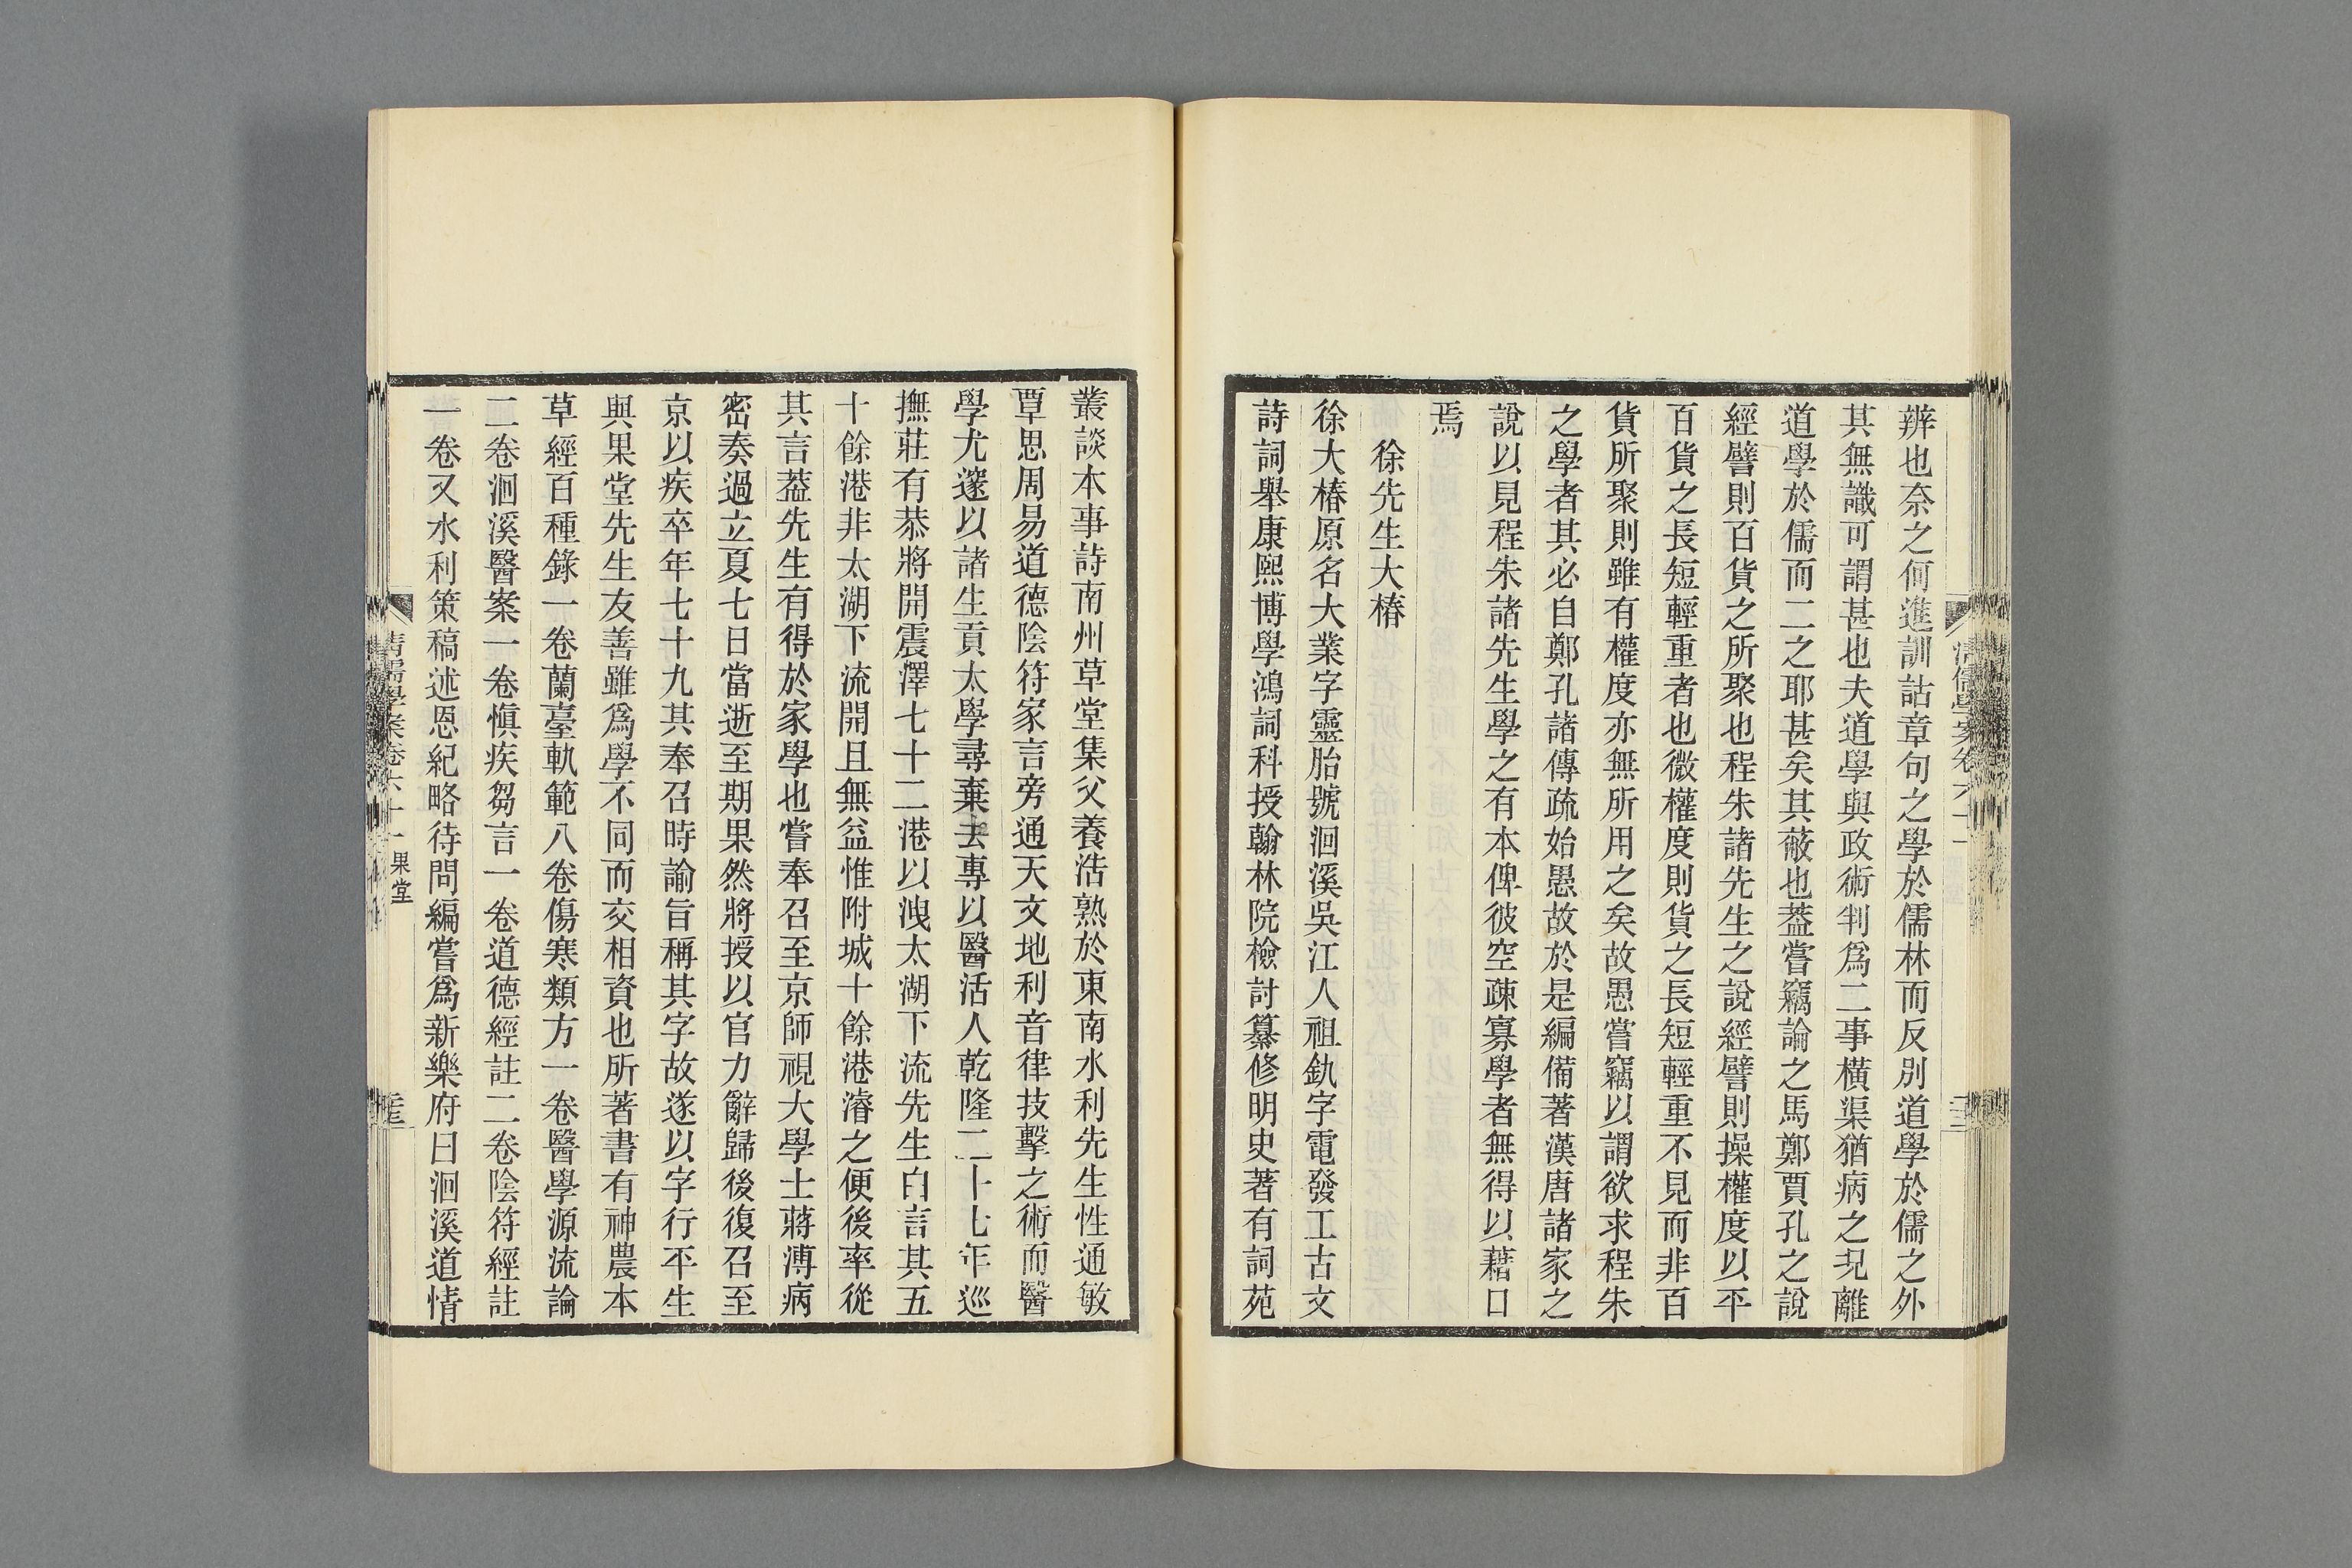 辨也奈之何進訓詁章句之學於儒林而反別道學於儒之外
其無識可謂甚也夫道學與政術判爲二事橫渠猶病之況離
道學於儒而二之耶甚矣其蔽也葢嘗竊論之馬鄭賈孔之說
經譬則百貨之所聚也程朱諸先生之說經譬則操權度以平
百貨之長短輕重者也微權度則貨之長短輕重不見而非百
貨所聚則雖有權度亦無所用之矣故愚嘗竊以謂欲求程朱
之學者其必自鄭孔諸傳疏始愚故於是編備著漢唐諸家之
說以見程朱諸先生學之有本俾彼空疎寡學者無得以藉口
焉
徐先生大椿
徐大椿原名大業字靈胎號洄溪吳江人祖釚字電發工古文
詩詞舉康熙博學鴻詞科授翰林院檢討纂修明史著有詞苑
叢談本事詩南州草堂集父養浩熟於東南水利先生性通敏
覃思周易道德陰符家言旁通天文地利音律技擊之術而醫
學尤邃以諸生貢太學尋棄去專以醫活人乾隆二十七年巡
撫莊有恭將開震澤七十二港以洩太湖下流先生白言其五
十餘港非太湖下流開且無益惟附城十餘港濬之便後率從
其言葢先生有得於家學也嘗奉召至京師視大學士蔣溥病
密奏過立夏七日當逝至期果然將授以官力辭歸後復召至
京以疾卒年七十九其奉召時諭旨稱其字故遂以字行平生
與果堂先生友善雖爲學不同而交相資也所著書有神農本
草經百種錄一卷蘭臺軌範八卷傷寒類方一卷醫學源流論
二卷洄溪醫案一卷愼疾芻言一卷道德經註二卷陰符經註
一卷又水利策稿述恩紀略待問編嘗爲新樂府曰洄溪道情
清儒學案卷六十一 果堂